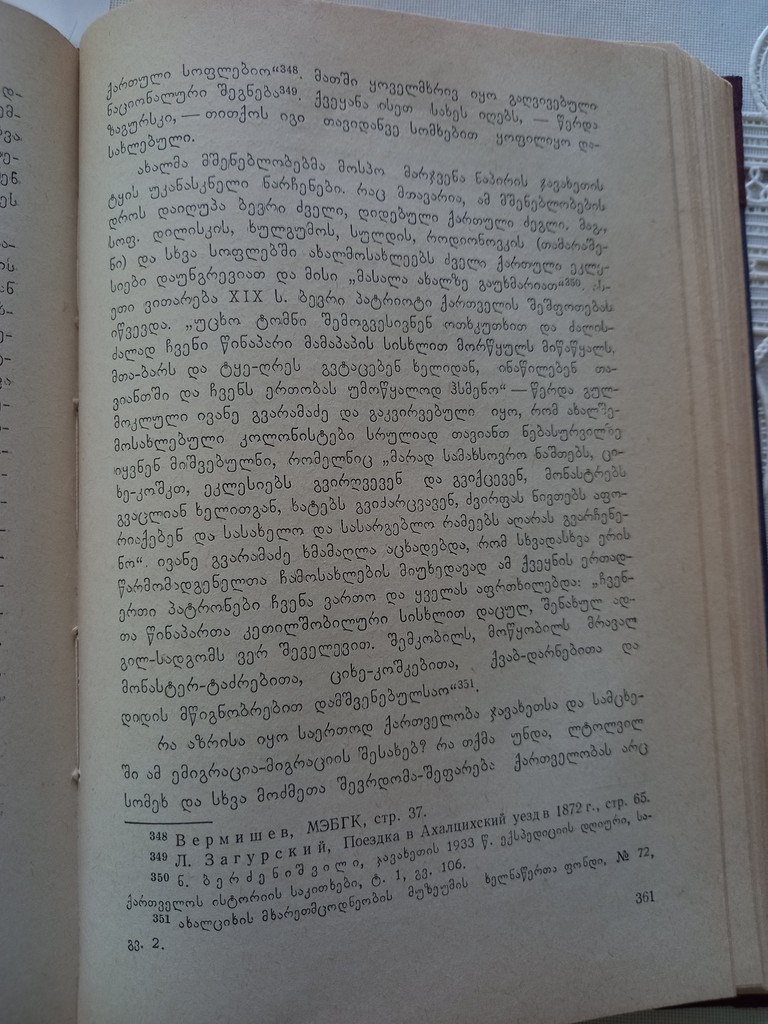 ქართული სოფლებიო“348. მათში ყოველმხრივ იყო გაღვივებული
ნაციონალური შეგნება349. ქვეყანა ისეთ სახეს იღებს, — წერდა
ზაგურსკი, — თითქოს იგი თავიდანვე სომხებით ყოფილიყო და-
სახლებული.
ახალმა მშენებლობებმა მოსპო მარჯვენა ნაპირის ჯავახეთის
ტყის უკანასკნელი ნარჩენები. რაც მთავარია, ამ მშენებლობების
დროს დაიღუპა ბევრი ძველი, დიდებული ქართული ძეგლი. მაგ.,
სოფ. დილისკის, ხულგუმოს, სულდის, როდიონოვკის (თამარაშე-
ნი) და სხვა სოფლებში ახალმოსახლეებს ძველი ქართული ეკლე-
სიები დაუნგრევიათ და მისი „მასალა ახალზე გაუხმარიათ“350. ას-
ეთი ვითარება XIX ს. ბევრი პატრიოტი ქართველის შეშფოთებას
იწვევდა. „უცხო ტომნი შემოგვესივნენ ოთხკუთხით და ძალის-
ძალად ჩვენი წინაპარი მამაპაპის სისხლით მორწყულს მიწაწყალს,
მთა-ბარს და ტყე-ღრეს გვტაცებენ ხელიდან, ინაწილებენ თა-
ვიანთში და ჩვენს ერთობას უმოწყალოდ ჰსმენო“ — წერდა გულ-
მოკლული ივანე გვარამაძე და გაკვირვებული იყო, რომ ახალშე-
მოსახლებული კოლონისტები სრულიად თავიანთ ნებასურვილზე
იყვნენ მიშვებულნი, რომელნიც „მარად სამახსოვრო ნაშთებს, ცი-
ხე-კოშკთ, ეკლესიებს გვირღვევენ და გვიქცევენ, მონასტრებს
გვაცლიან ხელითგან, ხატებს გვიძარცვავენ, ძვირფას ნივთებს აფო-
რიაქებენ და სასახელო და სასარგებლო რამეებს აღარას გვარჩენე-
ნო“. ივანე გვარამაძე ხმამაღლა აცხადებდა, რომ სხვადასხვა ერის
წარმომადგენელთა ჩამოსახლების მიუხედავად ამ ქვეყნის ერთად-
ერთი პატრონები ჩვენა ვართო და ყველას აფრთხილებდა: „ჩვენ-
თა წინაპართა კეთილშობილური სისხლით დაცულ, შენახულ ად-
გილ-სადგომს ვერ შეველევით. შემკობილს, მოწყობილს მრავალ
მონასტერ-ტაძრებითა, ციხე-კოშკებითა, ქვაბ-დარნებითა და
დიდის მწიგნობრებით დამშვენებულსაო“351.
რა აზრისა იყო საერთოდ ქართველობა ჯავახეთსა და სამცხე-
ში ამ ემიგრაცია-მიგრაციის შესახებ? რა თქმა უნდა, ლტოლვილ
სომეხ და სხვა მოძმეთა შევრდომა-შეფარება ქართველობას არც
348 Вермишев, МЭБГК, стр. 37.
349 Л. Загурский, Поездка в Ахалцихский уезд в 1872 г., стр. 65.
350 ნ. ბერძენიშვილი, ჯავახეთის 1933 წ. ექსპედიციის დღიური, სა-
ქართველოს ისტორიის საკითხები, ტ. 1, გვ. 106.
351 ახალციხის მხარეთმცოდნეობის მუზეუმის ხელნაწერთა ფონდი, № 72,
გვ. 2.
361